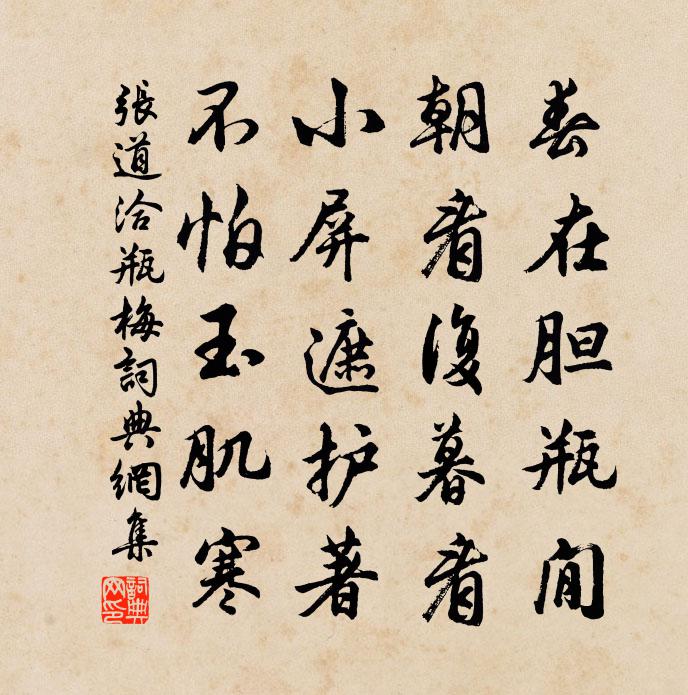 春在胆瓶间
朝看復暮看
小屏遮护著
不怕玉肌寒
張道洽瓶梅詞典網集
詞典网印